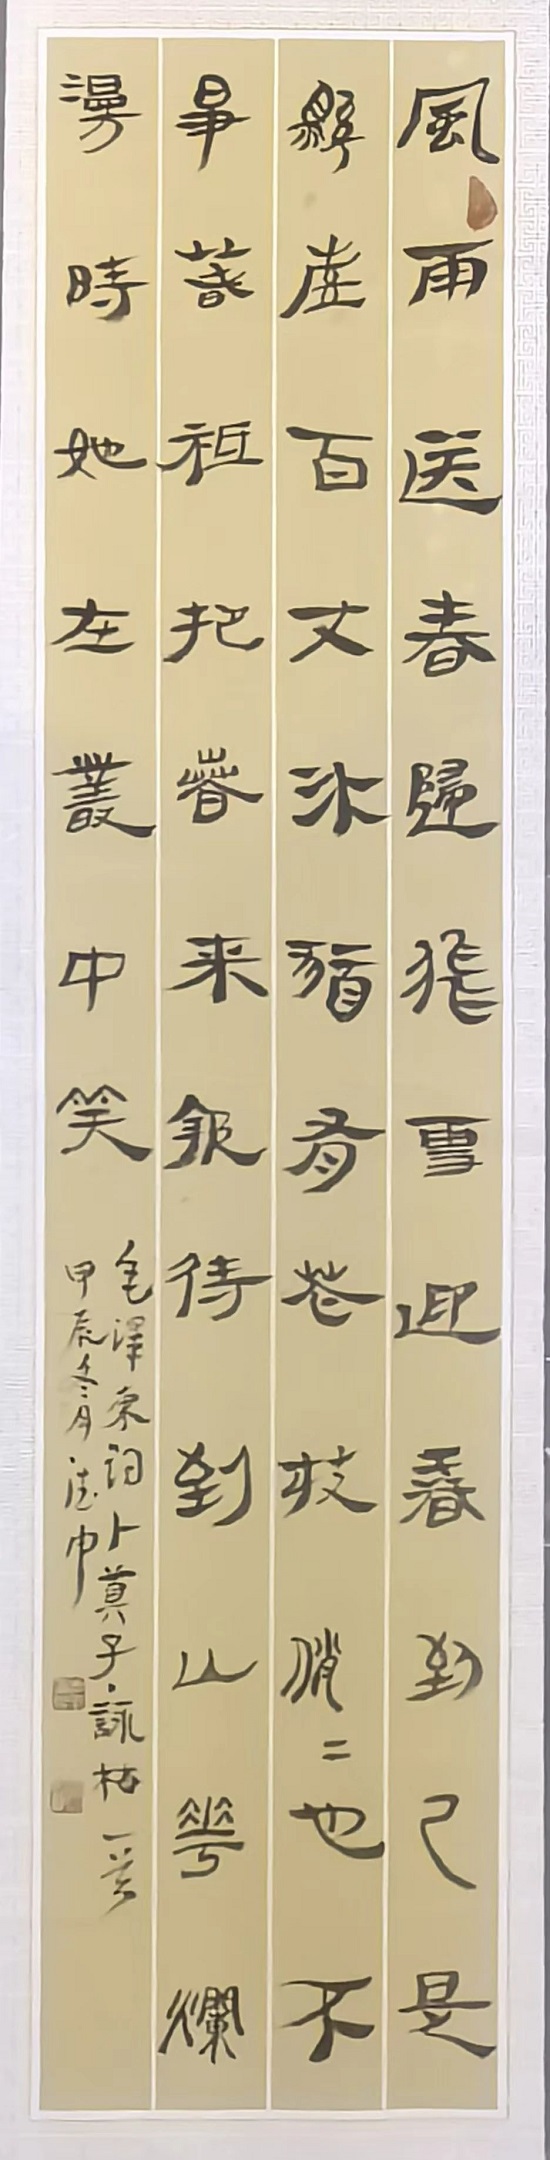 風雨送春歸飛雪迎春到已是
縣崖百丈冰猶有花枝俏二也不
爭春祗把春来報待到山花爛
漫時她在叢中笑
毛澤東詞卜算子·詠梅一首
甲辰冬月